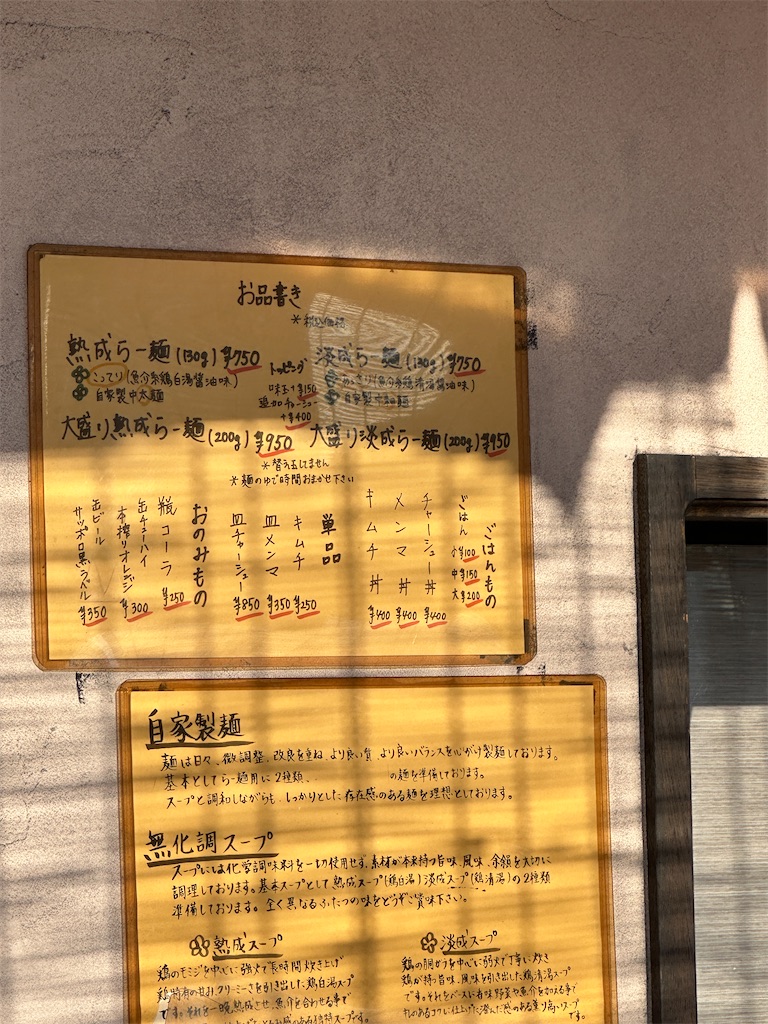 お品書き
＊税込価格
熟成らー麺(130g) ¥750
こってり(魚介系鶏白湯醤油味)
自家製中太麺
トッピング
味玉+¥150
追加チャーシュー
+¥400
淡成らー麺(130g) ¥750
あっさり(魚介系鶏清湯醤油味)
自家製中細麺
大盛り熟成らー麺(200g) ¥950
大盛り淡成らー麺(200g) ¥950
＊替え玉はしません
＊麺のゆで時間おまかせ下さい
ごはんもの
ごはん
小¥100
中¥150
大¥200
チャーシュー丼 ¥400
メンマ丼 ¥400
キムチ丼 ¥400
単品
キムチ ¥250
皿メンマ ¥350
皿チャーシュー ¥850
おのみもの
瓶コーラ ¥250
缶チューハイ
本搾りオレンジ ¥300
缶ビール
サッポロ黒ラベル ¥350
自家製麺
麺は日々、微調整、改良を重ね、より良い質、より良いバランスを心がけ製麺しております。
基本としてらー麺用に2種類、
の麺を準備しております。
スープと調和しながらも、しっかりとした存在感のある麺を理想としております。
無化調スープ
スープには化学調味料を一切使用せず、素材が本来持つ旨味、風味、余韻を大切に
調理しております。基本スープとして熟成スープ(鶏白湯)淡成スープ(鶏清湯)の2種類
準備しております。全く異なるふたつの味をどうぞご賞味下さい。
熟成スープ
鶏のモミジを中心に強火で長時間炊き上げ
鶏特有の甘み、クリーミーさを引き出した鶏白湯スープ
です。それを一晩熟成させ、魚介を合わせる事で
淡成スープ
鶏の胴がらを中心に弱火で丁寧に炊き
鶏が持つ旨味、風味を引き出した鶏清湯スープ
です。それをベースに香味野菜や魚介を加える事で
のあるコクに仕上げた澄んだ感のある薫り高いスープ
です。